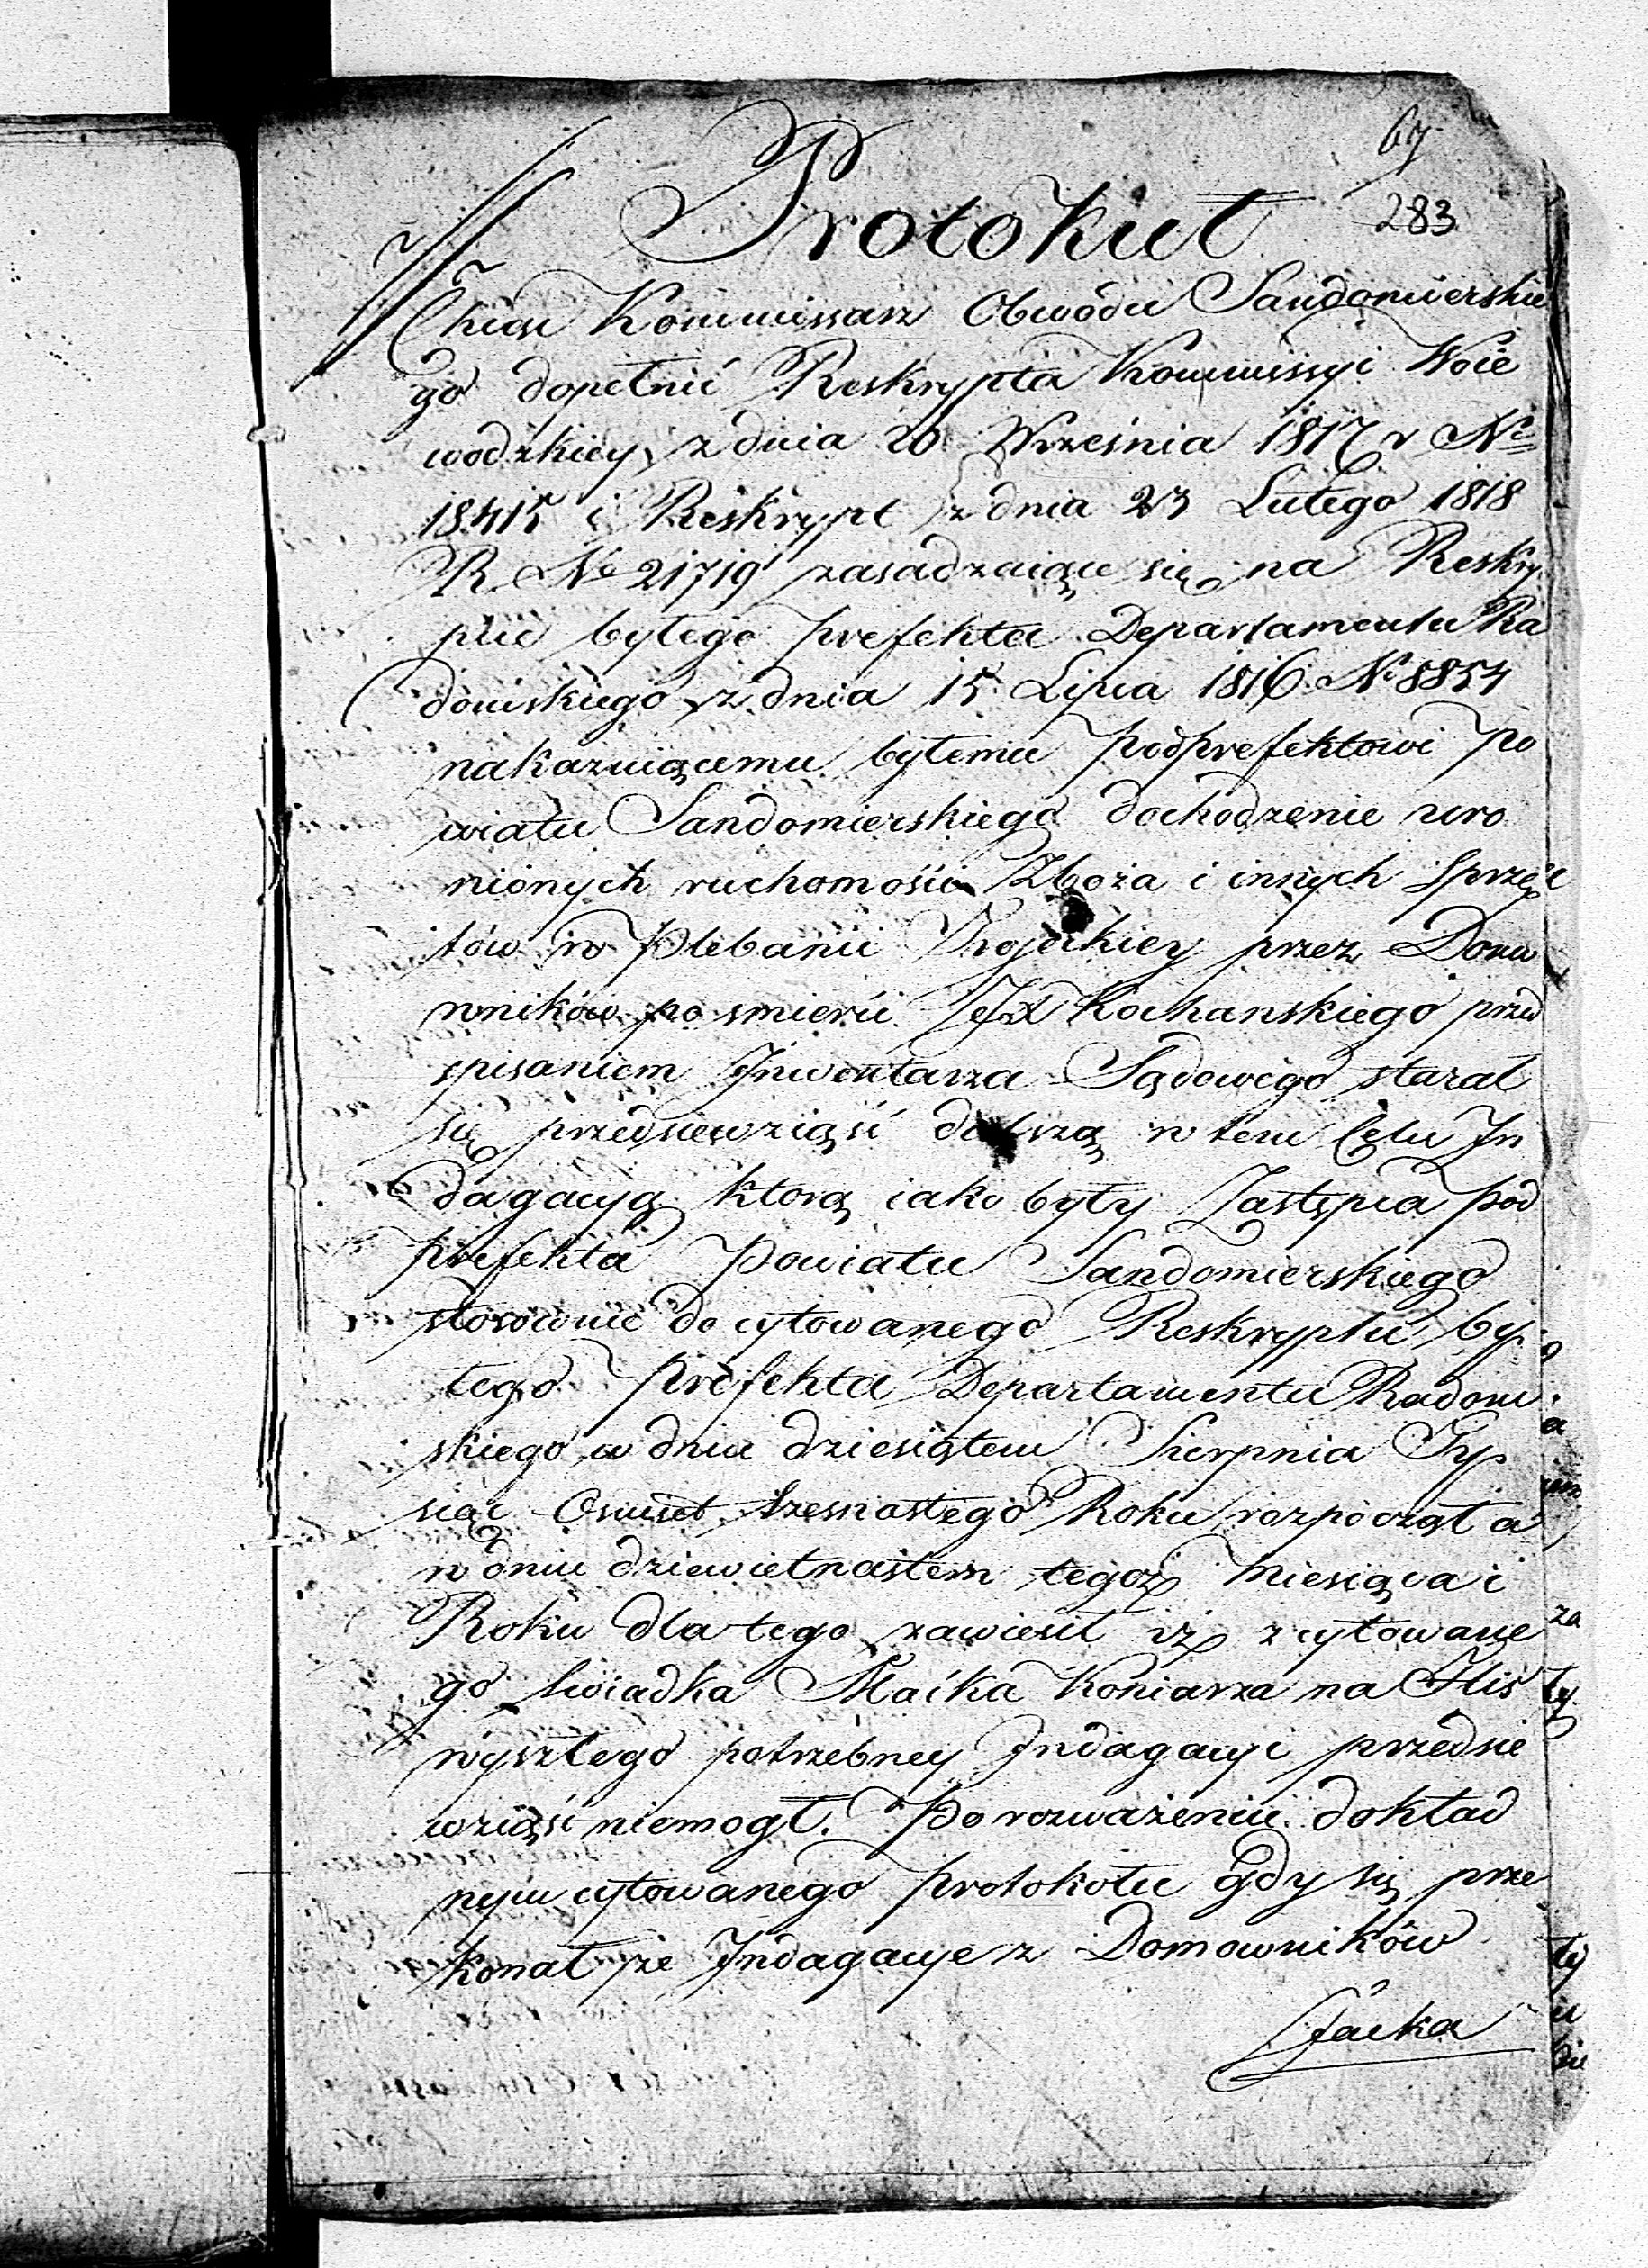 67
283
Protokuł
Chcąc Kommissarz Obwodu Sandomierskie
go dopełnić Reskrypta Kommissyi Woie
wodzkiey z dnia 20 Września 1817 r No
18415 i Reskrypt z dnia 23 Lutego 1818
R. No 21719 zasadzaiące się na Reskry
pcie byłego prefekta Departamentu Ra
domskiego z dnia 15 Lipca 1816 No 8854
nakazuiącemu byłemu podprefektowi Po
wiatu Sandomierskiego dochodzenie uro
nionych ruchomości Zboża i innych sprzę
tów w Plebanii przez Domo
wników po smierci JX Kochanskiego przed
spisaniem Jnwentarza Sądowego starał
się przedsiewziąść dalszą w tem Celu Jn
dagacyą ktorą iako były Zastępca pod
prefekta Powiatu Sandomierskiego
stosownie do cytowanego Reskryptu by
łego prefekta Departamentu Radom
skiego w dniu dziesiątem Sierpnia Ty
siąc Osmset szesnastego Roku rozpoczął a
w dniu dziewietnastem tegoż Miesiąca i
Roku dla tego zawiesił iż z cytowane
go swiadka Maćka Koniarza na Flis
wyszłego potrzebney Jndagacyi przedsie
wziąść niemogł. Po rozważeniu dokład
nym cytowanego protokołu gdy się prze
konał że Jndagacye z Domowników
Jacka